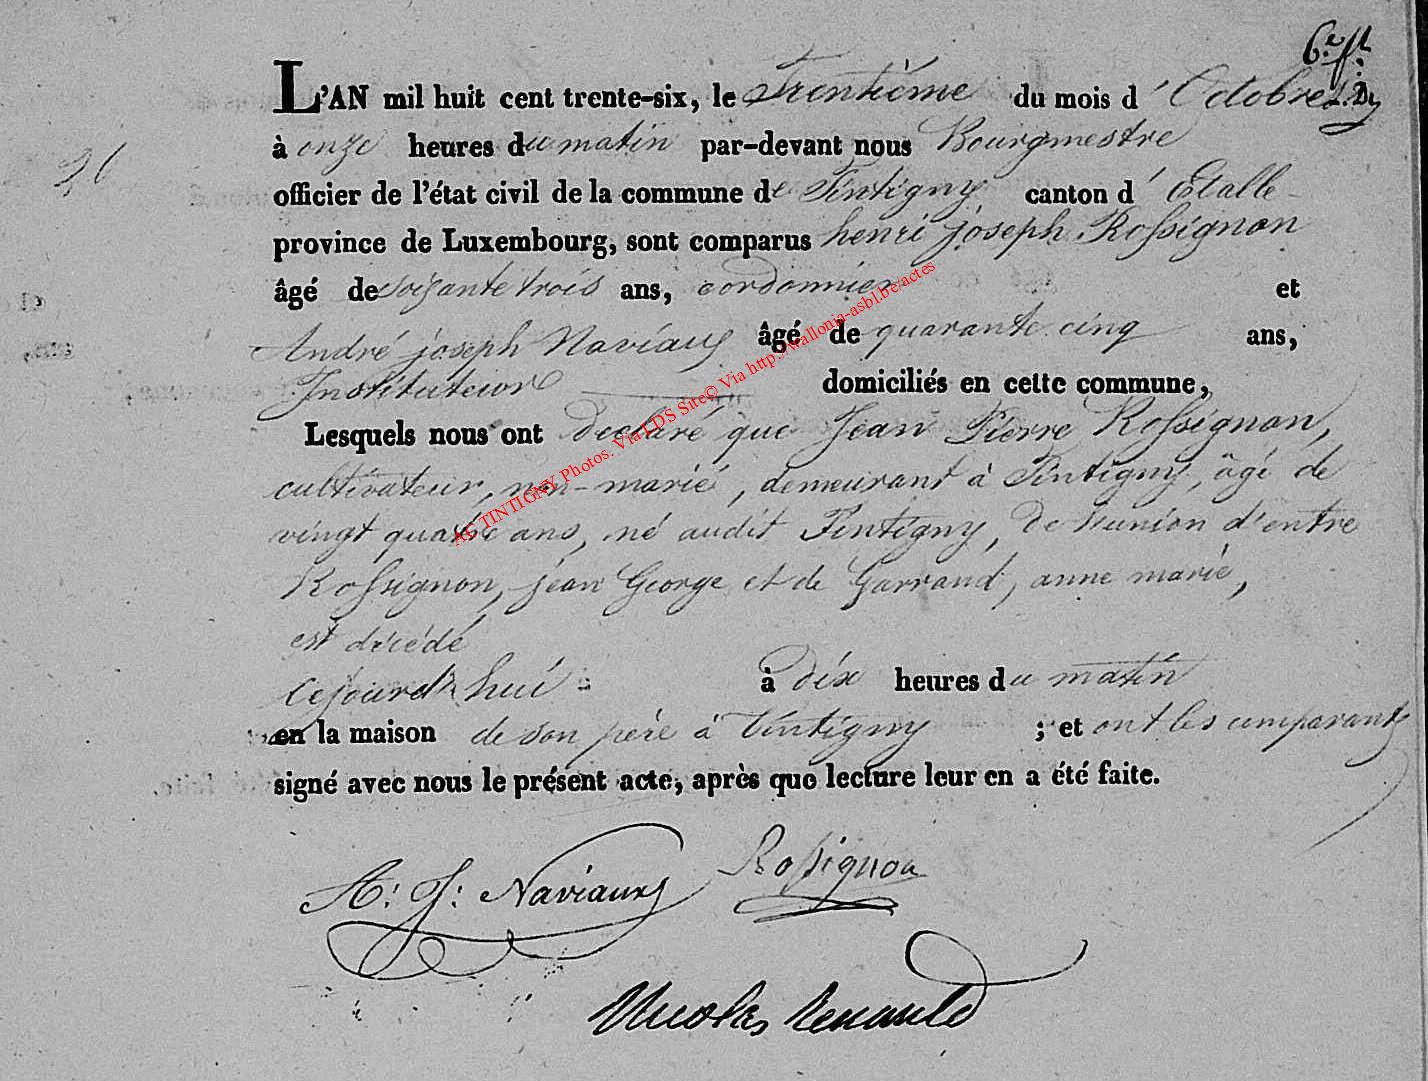 6.e ft.
L'AN mil huit cent trente-six, le Trentième du mois d'Octobre
à onze heures du matin par-devant nous Bourgmestre
officier de l'état civil de la commune de Tintigny canton d'Etalle
province de Luxembourg, sont comparus henri joseph Rossignon
âgé de soisante trois ans, cordonnier et
André joseph Naviaux âgé de quarante cinq ans,
Instituteur domiciliés en cette commune,
Lesquels nous ont declaré que Jean Pierre Rossignon,
cultivateur, non-marié, demeurant à Tintigny, âgé de
vingt quatre ans, né audit Tintigny, de l'union d'entre
Rossignon, jean George et de Garrand, anne marie,
est décédé
cejourd'hui à dix heures du matin
en la maison de son père à Tintigny ; et ont les comparants
signé avec nous le présent acte, après que lecture leur en a été faite.
A: J: Naviaux Rossignon
Nicolas Renauld
AC TINTIGNY Photos. Via LDS Site© Via http://wallonia-asbl.be/actes